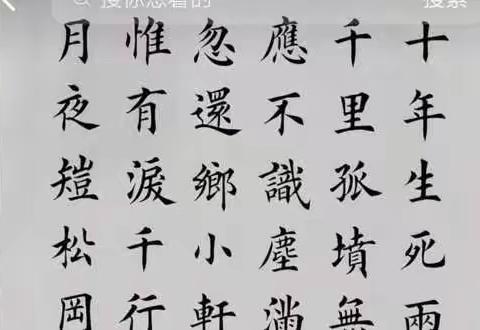 搜你想看的 搜索
十年生死兩
千里孤墳無
應不識塵滿
忽還鄉小軒
惟有淚千行
月夜短松岡